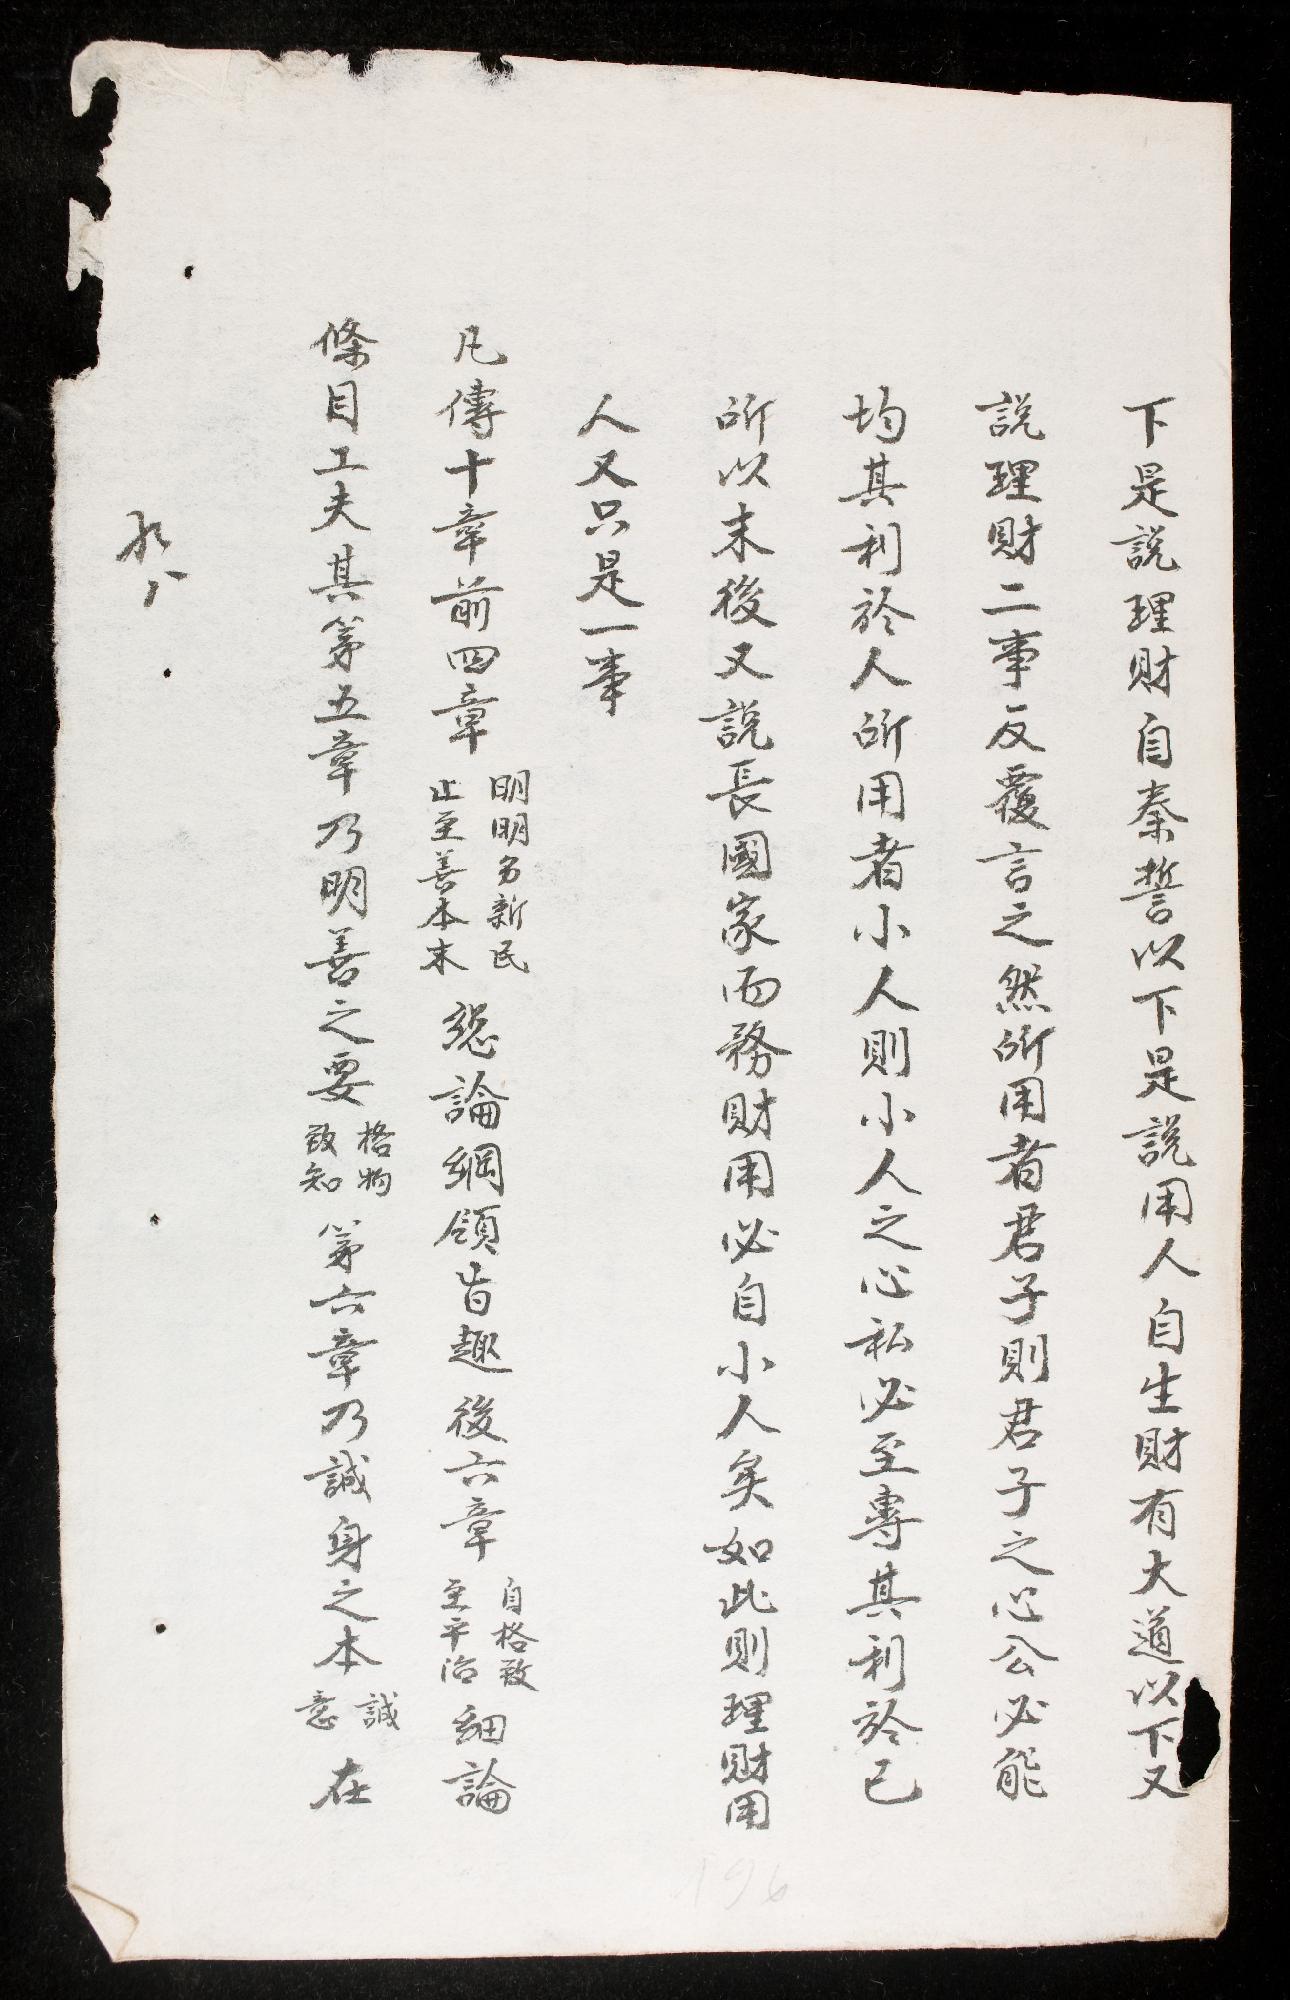 下是説理財自秦誓以下是説用人自生財有大道以下又
説理財二事反覆言之然所用者君子則君子之心公必能
均其利於人所用者小人則小人之心私必至專其利於己
所以末後又説長國家而務財用必自小人矣如此則理財用
人又只是一事
凡傳十章前四章明明新民止至善本末緫論綱領旨趣後六章自格致至平治細論
條目工夫其第五章乃明善之要格物致知第六章乃誠身之本誠意在
196